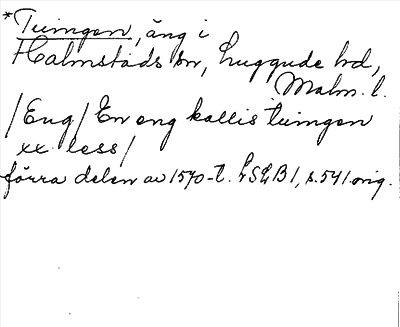 *Tuingen, äng i
Halmstads sn, Luggude hd,
Malm. l.
/Eng/ En eng kallis tuingen
xx less/
förra delen av 1570-t. LSLB 1, s. 541 orig.